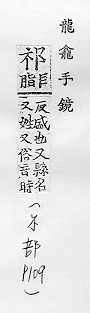 龍龕手鏡
祁巨脂
反盛也又縣名
又姓又俗音時
(礻部 P109)